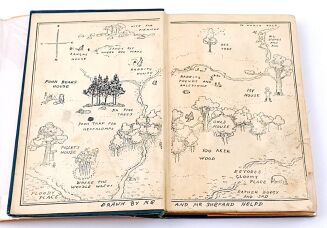 NICE FOR
PIKNICKS
TO NORTH POLE
BEE
TREE
SANDY PIT
WHERE ROO PLAYS
KANGAS
HOUSE
RABBITS
HOUSE
RABBITS
FRIENDS AND
RALETIONS
POOH BEARS
HOUSE
MY
HOUSE
SIX PINE
TREES
POOH TRAP FOR
HEFFALUMPS
OWLS
HOUSE
100 AKER
WOOD
PIGLETS
HOUSE
WHERE THE
WOOZLE WASNT
FLOODY
PLACE
EEYORES
GLOOMY
PLACE
RATHER BOGGY
AND SAD
DRAWN BY ME
AND MR SHEPARD HELPD